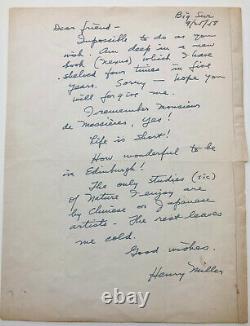 Big Sur
9/25/58
Dear friend -
Impossible to do as you
wish. Am deep in a new
book (Nexus) which I have
shelved four times in five
years. Sorry - hope you
will forgive me.
I remember Monsieur
de Mossières, yes!
Life is short!
How wonderful to be
in Edinburgh!
The only studies (sic)
of Nature I enjoy are
by Chinese or Japanese
artists - The rest leaves
me cold.
Good wishes.
Henry Miller